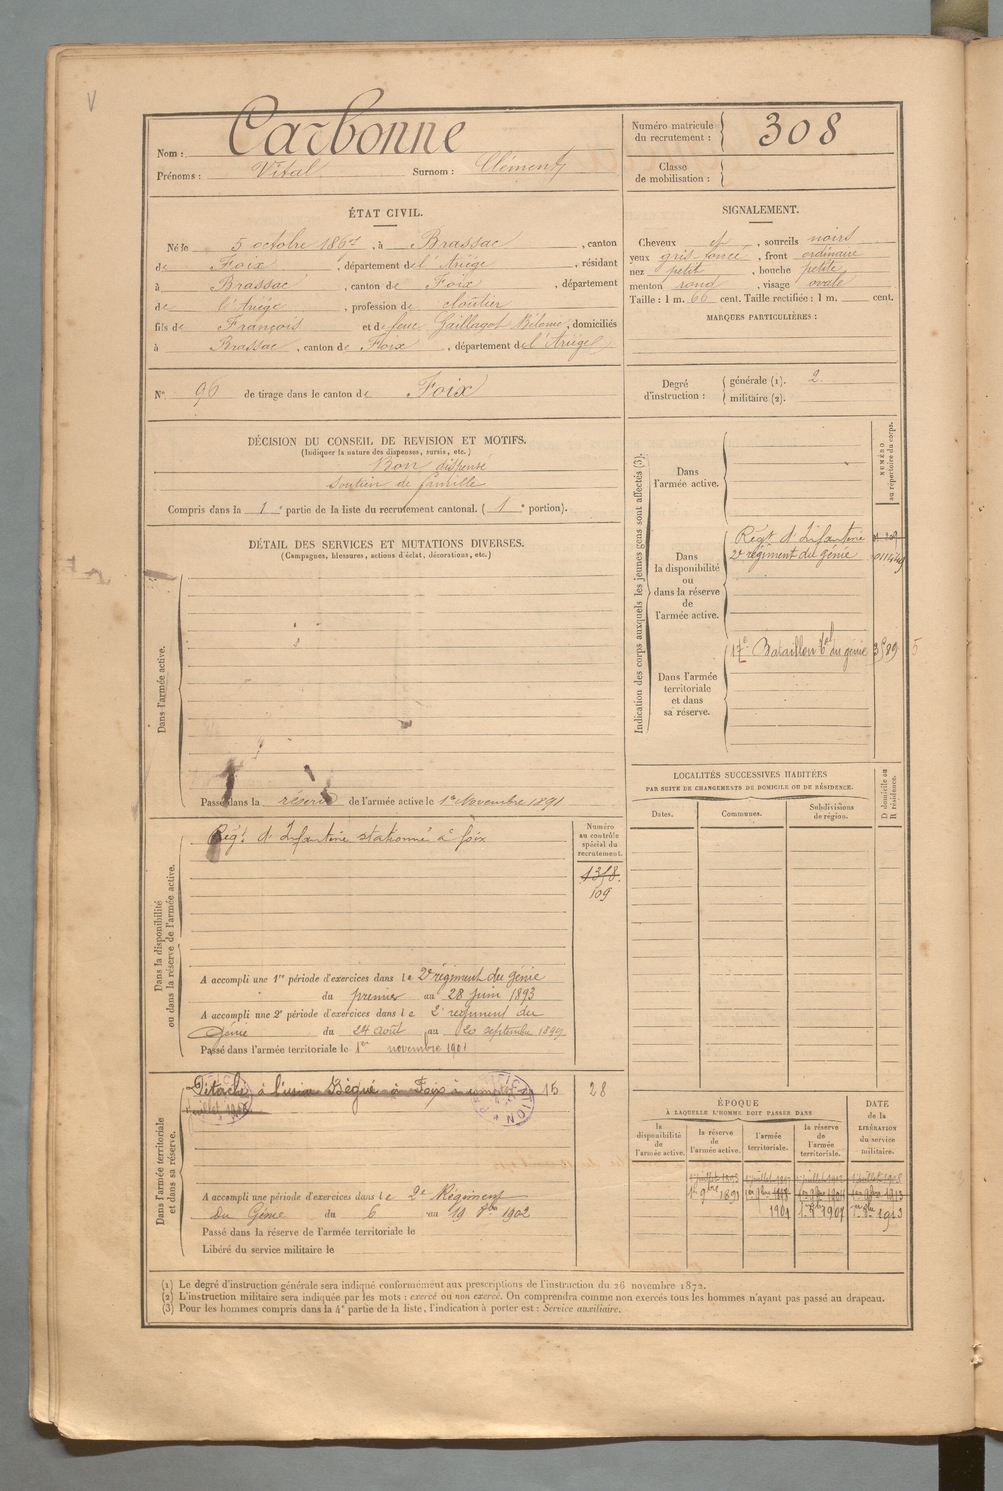 V
Nom : Carbonne
Prénoms : Vital Surnom : Clément
Numéro matricule du recrutement : 308
Classe de mobilisation :
ÉTAT CIVIL.
Né le 5 octobre 1867, à Brassac, canton
de Foix, département de l'Ariège, résidant
à Brassac, canton de Foix, département
de l'Ariège, profession de cloutier
fils de François et de feue Gaillagot, domiciliés
à Brassac, canton de Foix, département de l'Ariège
N° 96 de tirage dans le canton de Foix
SIGNALEMENT.
Cheveux et, sourcils noirs
yeux gris foncé, front ordinaire
nez petit, bouche petite
menton rond, visage ovale
Taille : 1 m. 66 cent. Taille rectifiée : 1 m. cent.
MARQUES PARTICULIÈRES :
Degré d'instruction : générale (1). 2
militaire (2).
DÉCISION DU CONSEIL DE REVISION ET MOTIFS.
(Indiquer la nature des dispenses, sursis, etc.)
Bon dispensé
soutien de famille
Compris dans la 1e partie de la liste du recrutement cantonal. (1e portion).
DÉTAIL DES SERVICES ET MUTATIONS DIVERSES.
(Campagnes, blessures, actions d'éclat, décorations, etc.)
Dans l'armée active.
Passé dans la réserve de l'armée active le 1er Novembre 1891
Dans la disponibilité ou dans la réserve de l'armée active.
Régt d'Infanterie stationné à Foix
Numéro au contrôle spécial du recrutement.
1318.
109
A accompli une 1re période d'exercices dans le 2e régiment du génie
du premier au 28 juin 1893
A accompli une 2e période d'exercices dans le 2e régiment du
Génie du 24 août au 20 septembre 1899
Passé dans l'armée territoriale le 1er novembre 1901
Dans l'armée territoriale et dans sa réserve.
à l'usine Bègué à Foix à compter 15
28
juillet
A accompli une période d'exercices dans le 2e Régiment
du Génie du 6 au 19 8bre 1902
Passé dans la réserve de l'armée territoriale le
Libéré du service militaire le
Indication des corps auxquels les jeunes gens sont affectés (3).
NUMÉRO au répertoire du corps.
Dans l'armée active.
Dans la disponibilité ou dans la réserve de l'armée active.
Régt d'Infanterie
2e régiment du génie 011449
Dans l'armée territoriale et dans sa réserve.
17e Bataillon tal du génie
5
LOCALITÉS SUCCESSIVES HABITÉES
PAR SUITE DE CHANGEMENTS DE DOMICILE OU DE RÉSIDENCE.
Dates.
Communes.
Subdivisions de région.
D domicile ou R résidence.
ÉPOQUE
À LAQUELLE L'HOMME DOIT PASSER DANS
DATE de la LIBÉRATION du service militaire.
la disponibilité de l'armée active.
la réserve de l'armée active.
l'armée territoriale.
la réserve de l'armée territoriale.
1er 9bre 1891
1901
1er 9bre 1907
1913
(1) Le degré d'instruction générale sera indiqué conformément aux prescriptions de l'instruction du 26 novembre 1872.
(2) L'instruction militaire sera indiquée par les mots : exercé ou non exercé. On comprendra comme non exercés tous les hommes n'ayant pas passé au drapeau.
(3) Pour les hommes compris dans la 4e partie de la liste, l'indication à porter est : Service auxiliaire.